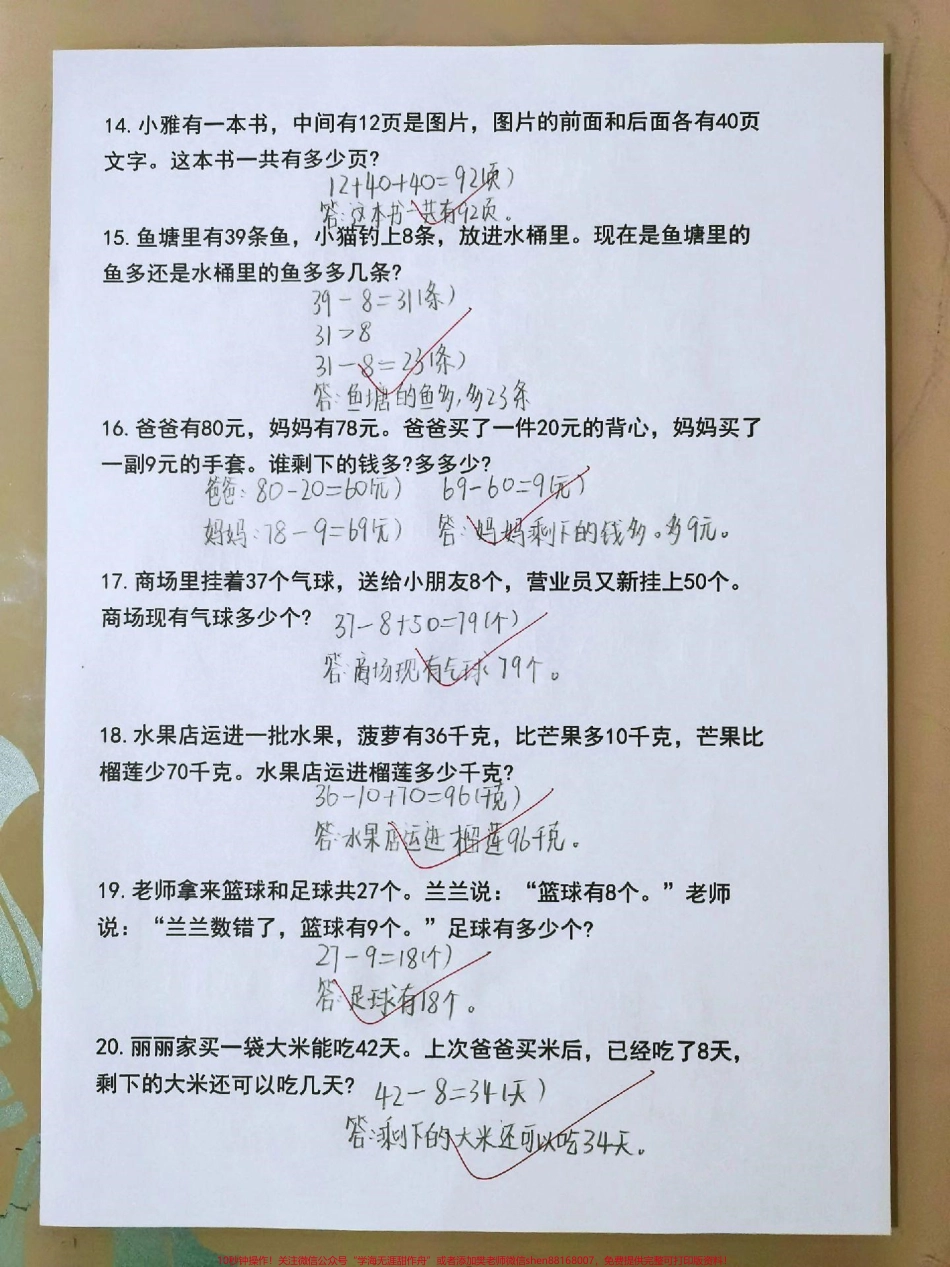 14.小雅有一本书，中间有12页是图片，图片的前面和后面各有40页
文字。这本书一共有多少页?
12+40+40=92(页)
答:这本书一共有92页。
15.鱼塘里有39条鱼，小猫钓上8条，放进水桶里。现在是鱼塘里的
鱼多还是水桶里的鱼多多几条?
39-8=31(条)
31>8
31-8=23(条)
答:鱼塘的鱼多,多23条
16.爸爸有80元，妈妈有78元。爸爸买了一件20元的背心，妈妈买了
一副9元的手套。谁剩下的钱多?多多少?
爸爸:80-20=60(元) 69-60=9(元)
妈妈:78-9=69(元) 答:妈妈剩下的钱多。多9元。
17.商场里挂着37个气球，送给小朋友8个，营业员又新挂上50个。
商场现有气球多少个?
37-8+50=79(个)
答:商场现有气球79个。
18.水果店运进一批水果，菠萝有36千克，比芒果多10千克，芒果比
榴莲少70千克。水果店运进榴莲多少千克?
36-10+70=96(千克)
答:水果店运进榴莲96千克。
19.老师拿来篮球和足球共27个。兰兰说：“篮球有8个。”老师
说：“兰兰数错了，篮球有9个。”足球有多少个?
27-9=18(个)
答:足球有18个。
20.丽丽家买一袋大米能吃42天。上次爸爸买米后，已经吃了8天，
剩下的大米还可以吃几天?
42-8=34(天)
答:剩下的大米还可以吃34天。
10秒钟操作！关注微信公众号“学海无涯甜作舟”或者添加樊老师微信shen88168007，免费提供完整可打印版资料！